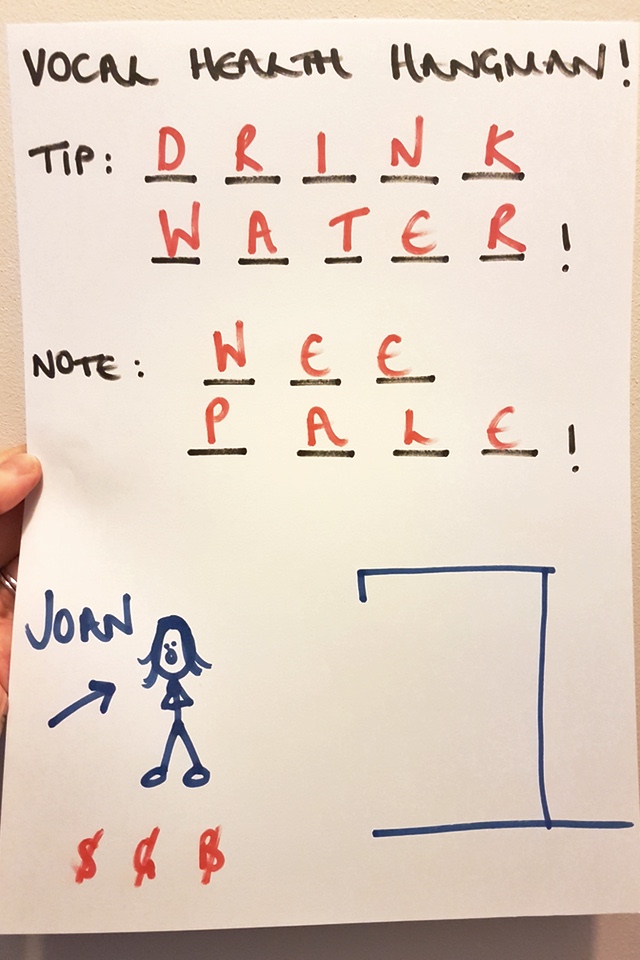 VOCAL HEALTH HANGMAN!
TIP: DRINK
WATER!
NOTE: WEE
PALE!
JOAN
S G B